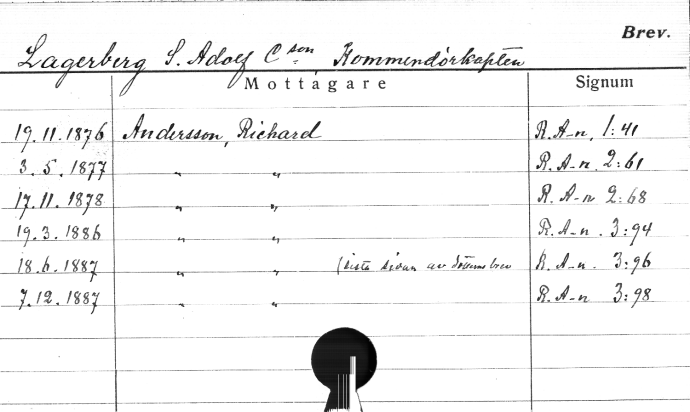 Brev.
Lagerberg S. Adolf C:son Kommendörkapten
Mottagare Signum
19.11.1876 Andersson, Richard R. A-n. 1:41
3.5.1877 „ „ R. A-n. 2:61
17.11.1878 „ „ R. A-n 2:68
19.3.1886 „ „ R. A-n. 3:94
18.6.1887 „ „ (sista sidan av dotterns brev R. A-n. 3:96
7.12.1887 „ „ R. A-n 3:98